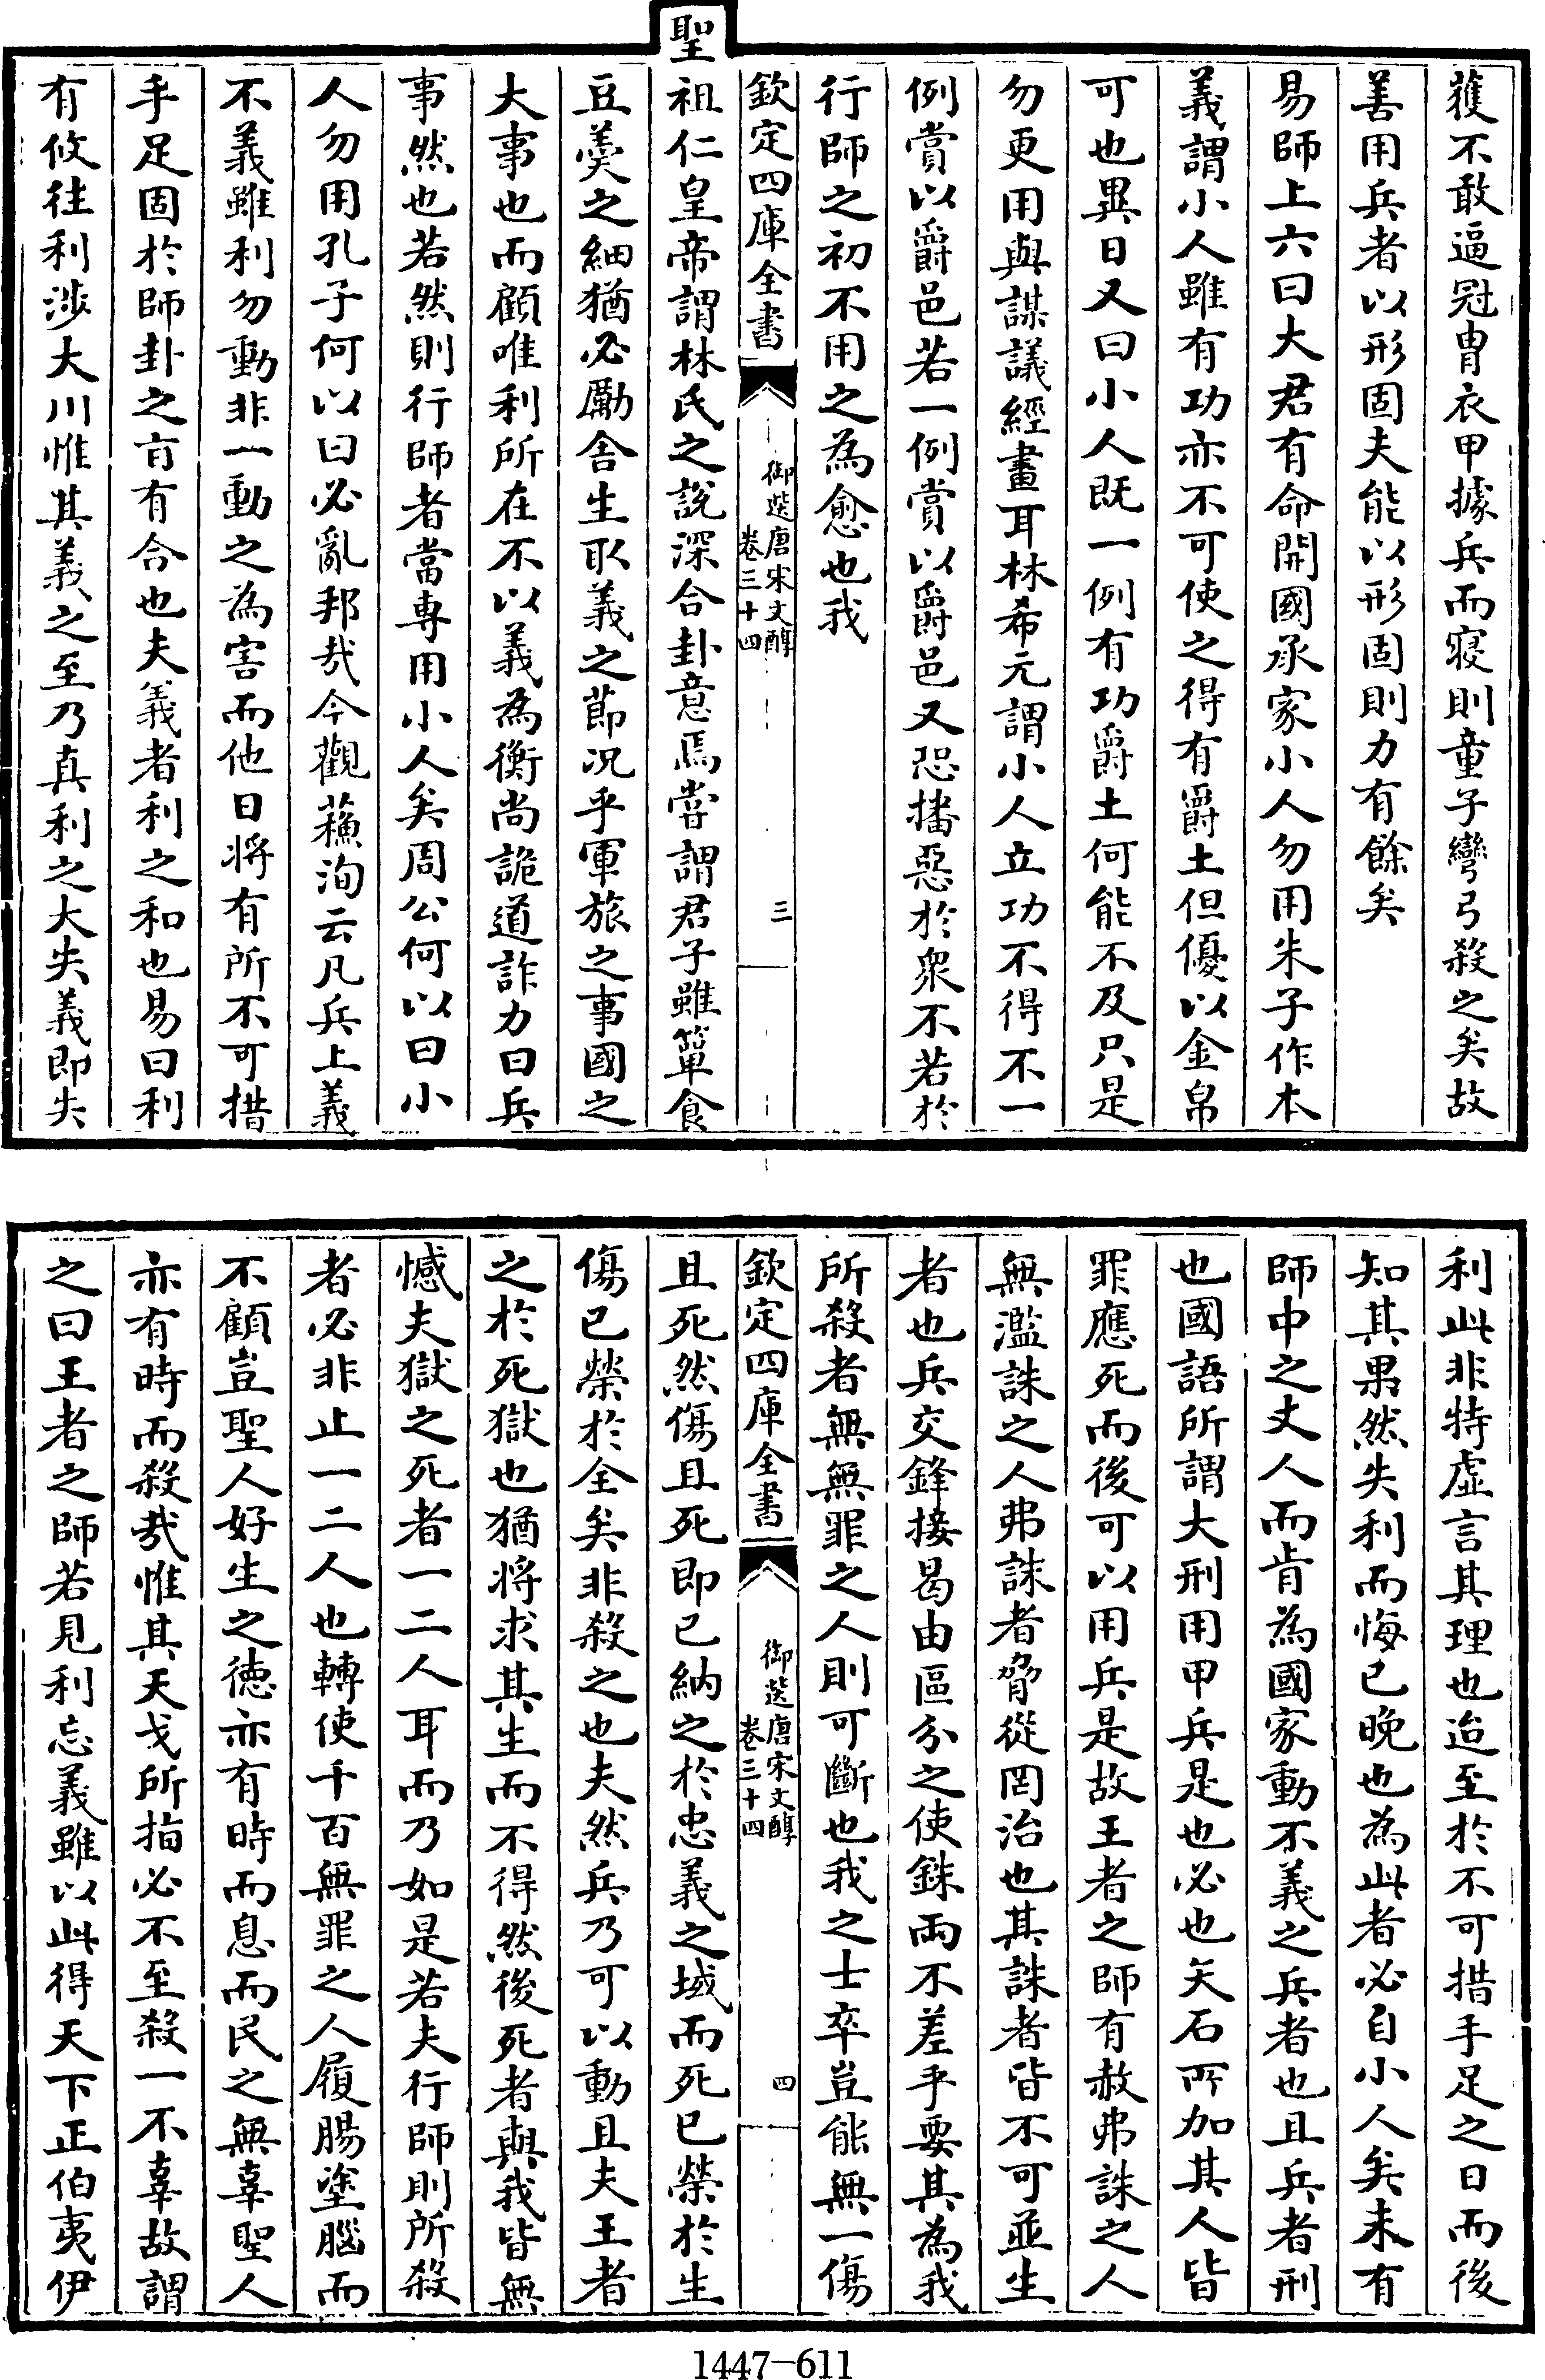 獲不敢逼冠胄衣甲據兵而寢則童子彎弓殺之矣故
善用兵者以形固夫能以形固則力有餘矣
易師上六曰大君有命開國承家小人勿用朱子作本
義謂小人雖有功亦不可使之得有爵土但優以金帛
可也異日又曰小人既一例有功爵土何能不及只是
勿更用與謀議經畫耳林希元謂小人立功不得不一
例賞以爵邑若一例賞以爵邑又恐播惡於衆不若於
行師之初不用之為愈也我
欽定四庫全書
御選唐宋文醇
卷三十四
三
聖
祖仁皇帝謂林氏之說深合卦意焉嘗謂君子雖簞食
豆羮之細猶必勵舍生取義之節况乎軍旅之事國之
大事也而顧唯利所在不以義為衡尚詭道詐力曰兵
事然也若然則行師者當專用小人矣周公何以曰小
人勿用孔子何以曰必亂邦哉今觀蘓洵云凡兵上義
不義雖利勿動非一動之為害而他日将有所不可措
手足固於師卦之㫖有合也夫義者利之和也易曰利
有攸往利涉大川惟其義之至乃真利之大失義即失
利此非特虚言其理也迨至於不可措手足之日而後
知其果然失利而悔已晚也為此者必自小人矣未有
師中之丈人而肯為國家動不義之兵者也且兵者刑
也國語所謂大刑用甲兵是也必也矢石所加其人皆
罪應死而後可以用兵是故王者之師有赦弗誅之人
無濫誅之人弗誅者脅從罔治也其誅者皆不可並生
者也兵交鋒接曷由區分之使銖兩不差乎要其為我
所殺者無無罪之人則可斷也我之士卒豈能無一傷
欽定四庫全書
御選唐宋文醇
卷三十四
四
且死然傷且死即已納之於忠義之域而死已榮於生
傷已榮於全矣非殺之也夫然兵乃可以動且夫王者
之於死獄也猶将求其生而不得然後死者與我皆無
憾夫獄之死者一二人耳而乃如是若夫行師則所殺
者必非止一二人也轉使千百無罪之人履腸塗腦而
不顧豈聖人好生之徳亦有時而息而民之無辜聖人
亦有時而殺哉惟其天戈所指必不至殺一不辜故謂
之曰王者之師若見利忘義雖以此得天下正伯夷伊
1447-611